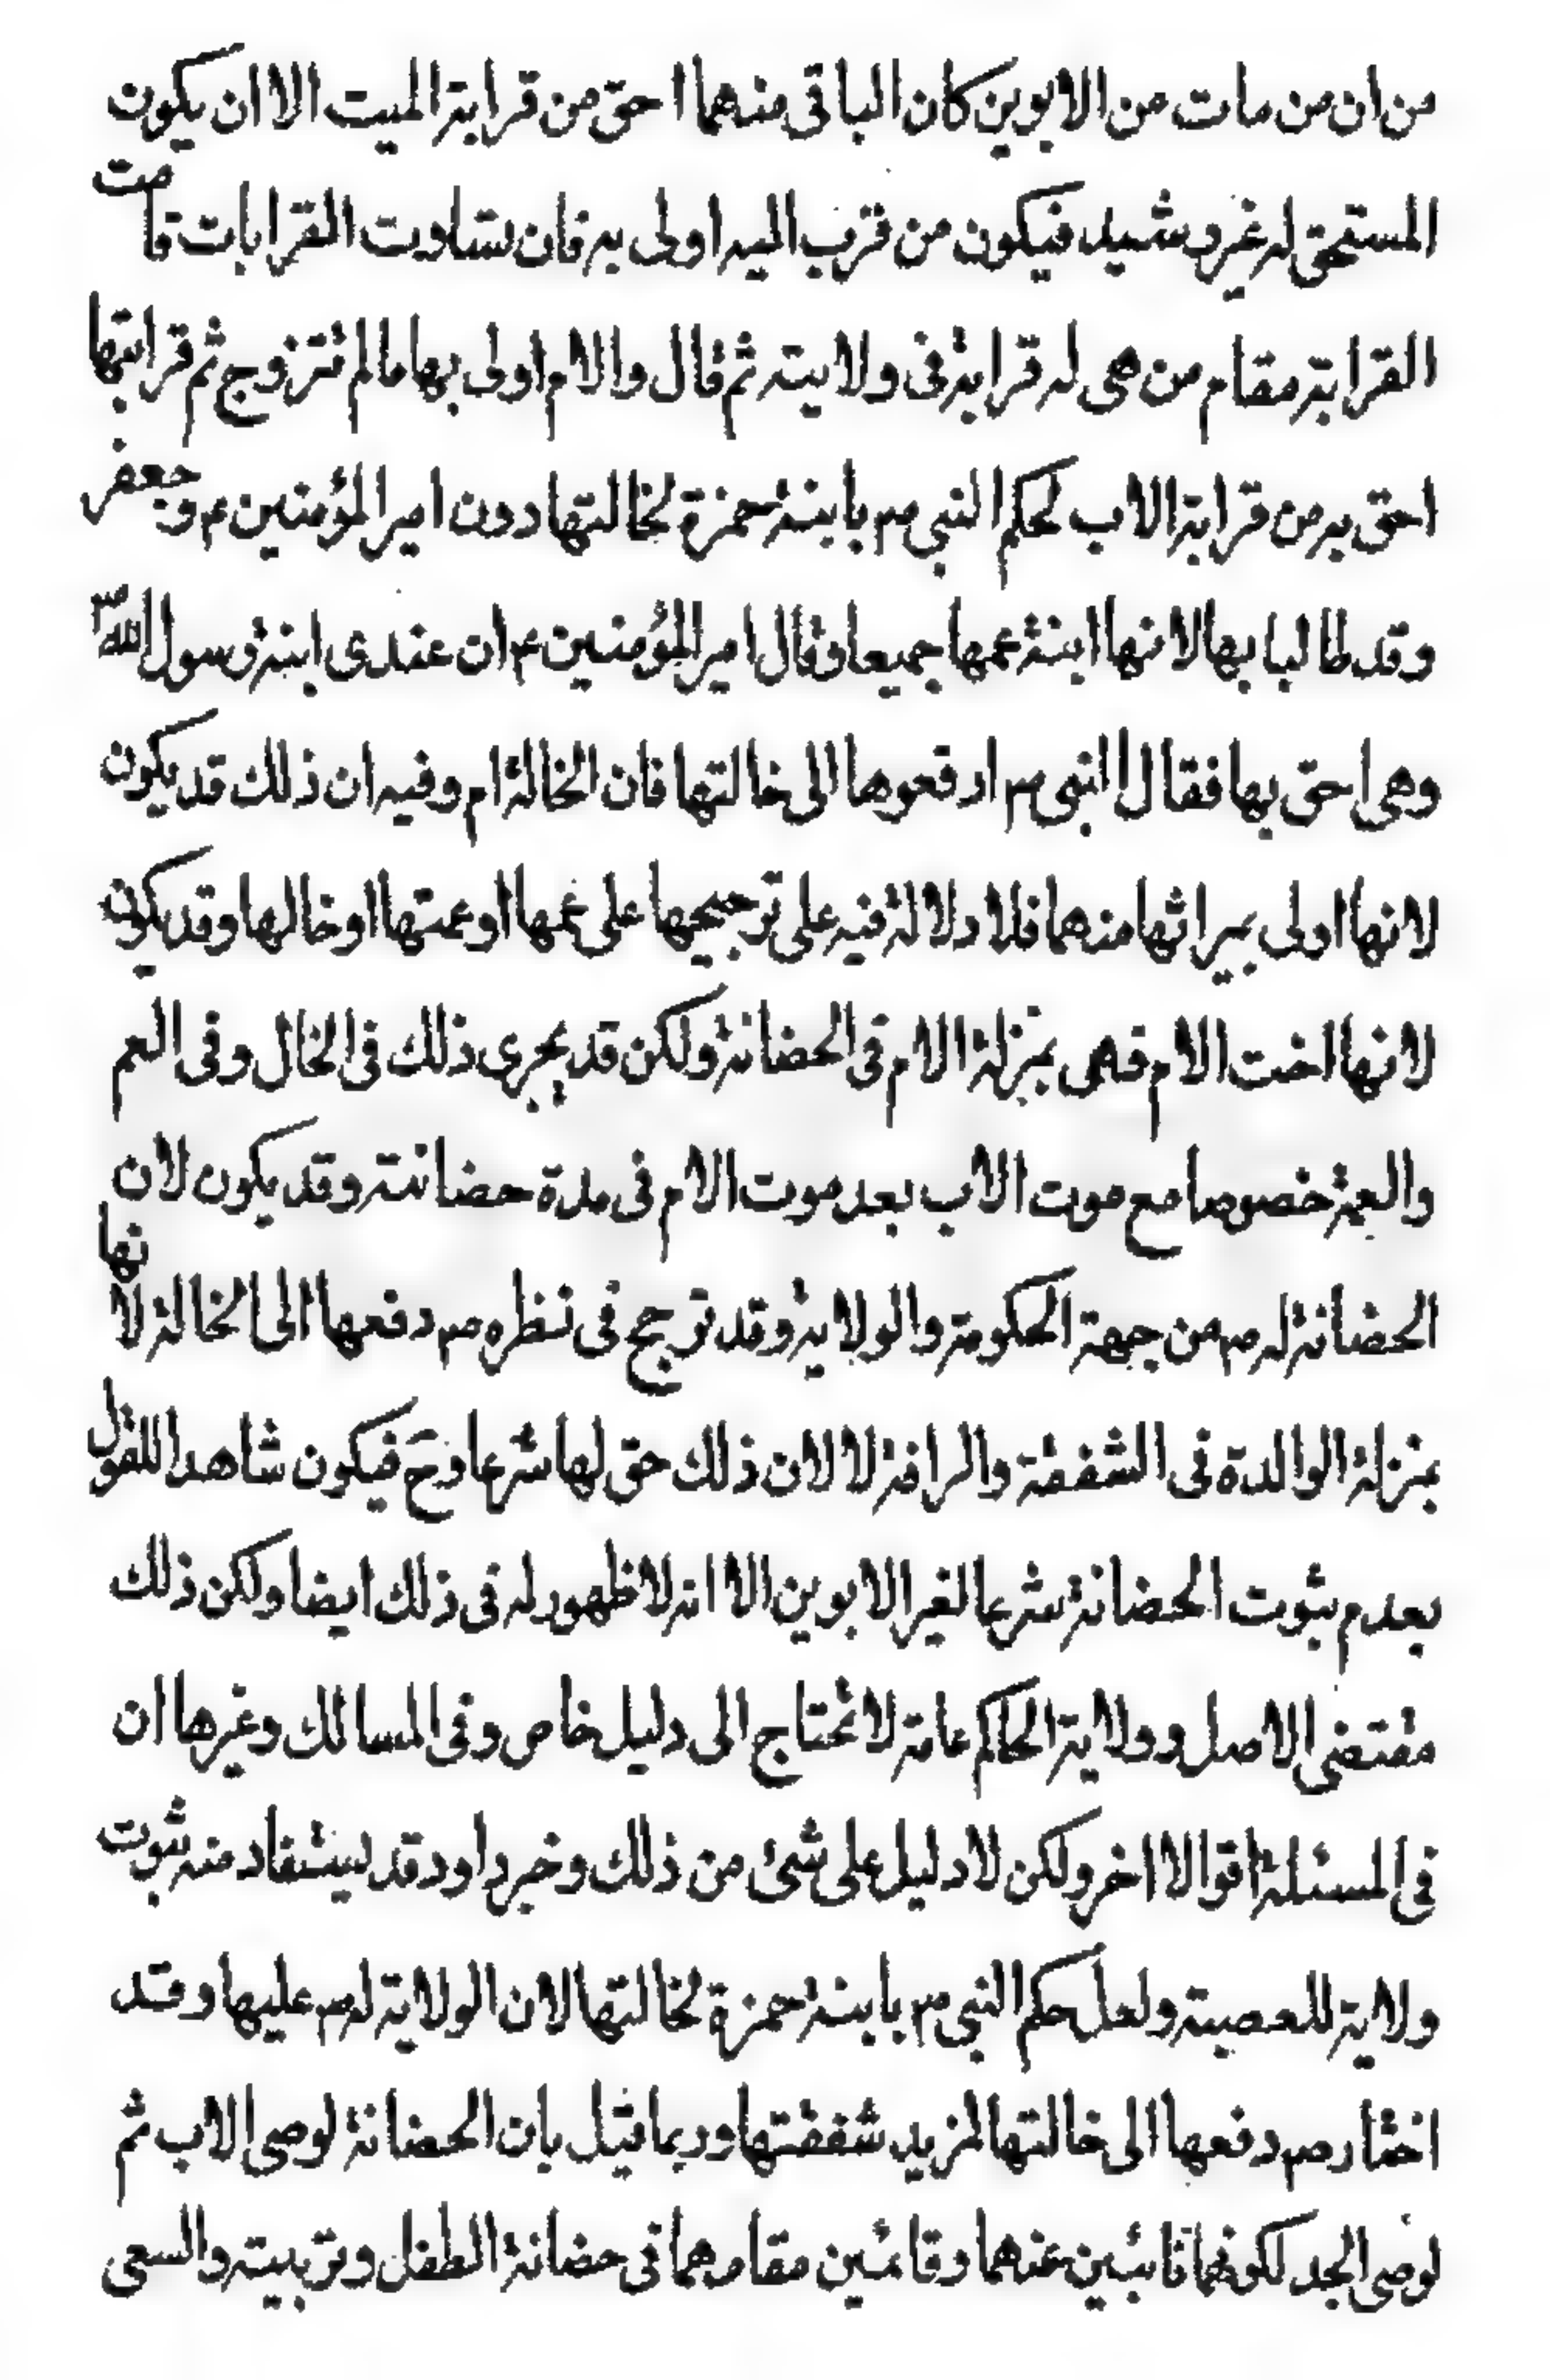 من ان من مات من الابوين كان الباقى منهما احق من قرابة الميت الا ان يكون
المستحق له غير رشيد فيكون من قرب اليه اولى به فان تساوت القرابات قامت
القرابة مقام من هى له قرابة فى ولايته ثم قال والام اولى بها ما لم تتزوج ثم قرابتها
احق به من قرابة الاب لحكم النبي ص بابنة حمزة لخالتها دون امير المؤمنين ع وجعفر
وقد طالبا بها لانها ابنة عمها جميعا وقال امير المؤمنين ع ان عندى ابنة رسول الله ص
وهى احق بها فقال النبى ص ادفعوها الى خالتها فان الخالة ام وفيه ان ذلك قد يكون
لانها اولى بميراثها منهما فلا دلالة فيه على ترجيحها على عمها او عمتها او خالها وقد يكون
لانها اخت الام فهى بمنزلة الام فى الحضانة ولكن قد يجرى ذلك فى الخال وفى العم
والعمة خصوصا مع موت الاب بعد موت الام فى مدة حضانته وقد يكون لان
الحضانة له ص من جهة الحكومة والولاية وقد ترجح فى نظره ص دفعها الى الخالة لانها
بمنزلة الوالدة فى الشفقة والرافة لا لان ذلك حق لها شرعا وح فيكون شاهدا للقول
بعدم ثبوت الحضانة شرعا لغير الابوين الا انه لا ظهور له فى ذلك ايضا ولكن ذلك
مقتضى الاصل وولاية الحاكم عامة لا تحتاج الى دليل خاص وفى المسالك وغيرها ان
فى المسئلة اقوالا اخر ولكن لا دليل على شئ من ذلك وخبر داود قد يستفاد منه ثبوت
ولاية للعصبة ولعل حكم النبى ص بابنة حمزة لخالتها لان الولاية له ص عليها وقد
اختار ص دفعها الى خالتها لمزيد شفقتها وربما قيل بان الحضانة لوصى الاب ثم
لوصى الجد لكونهما نائبين عنهما وقائمين مقامهما فى حضانة الطفل وتربيته والسعى